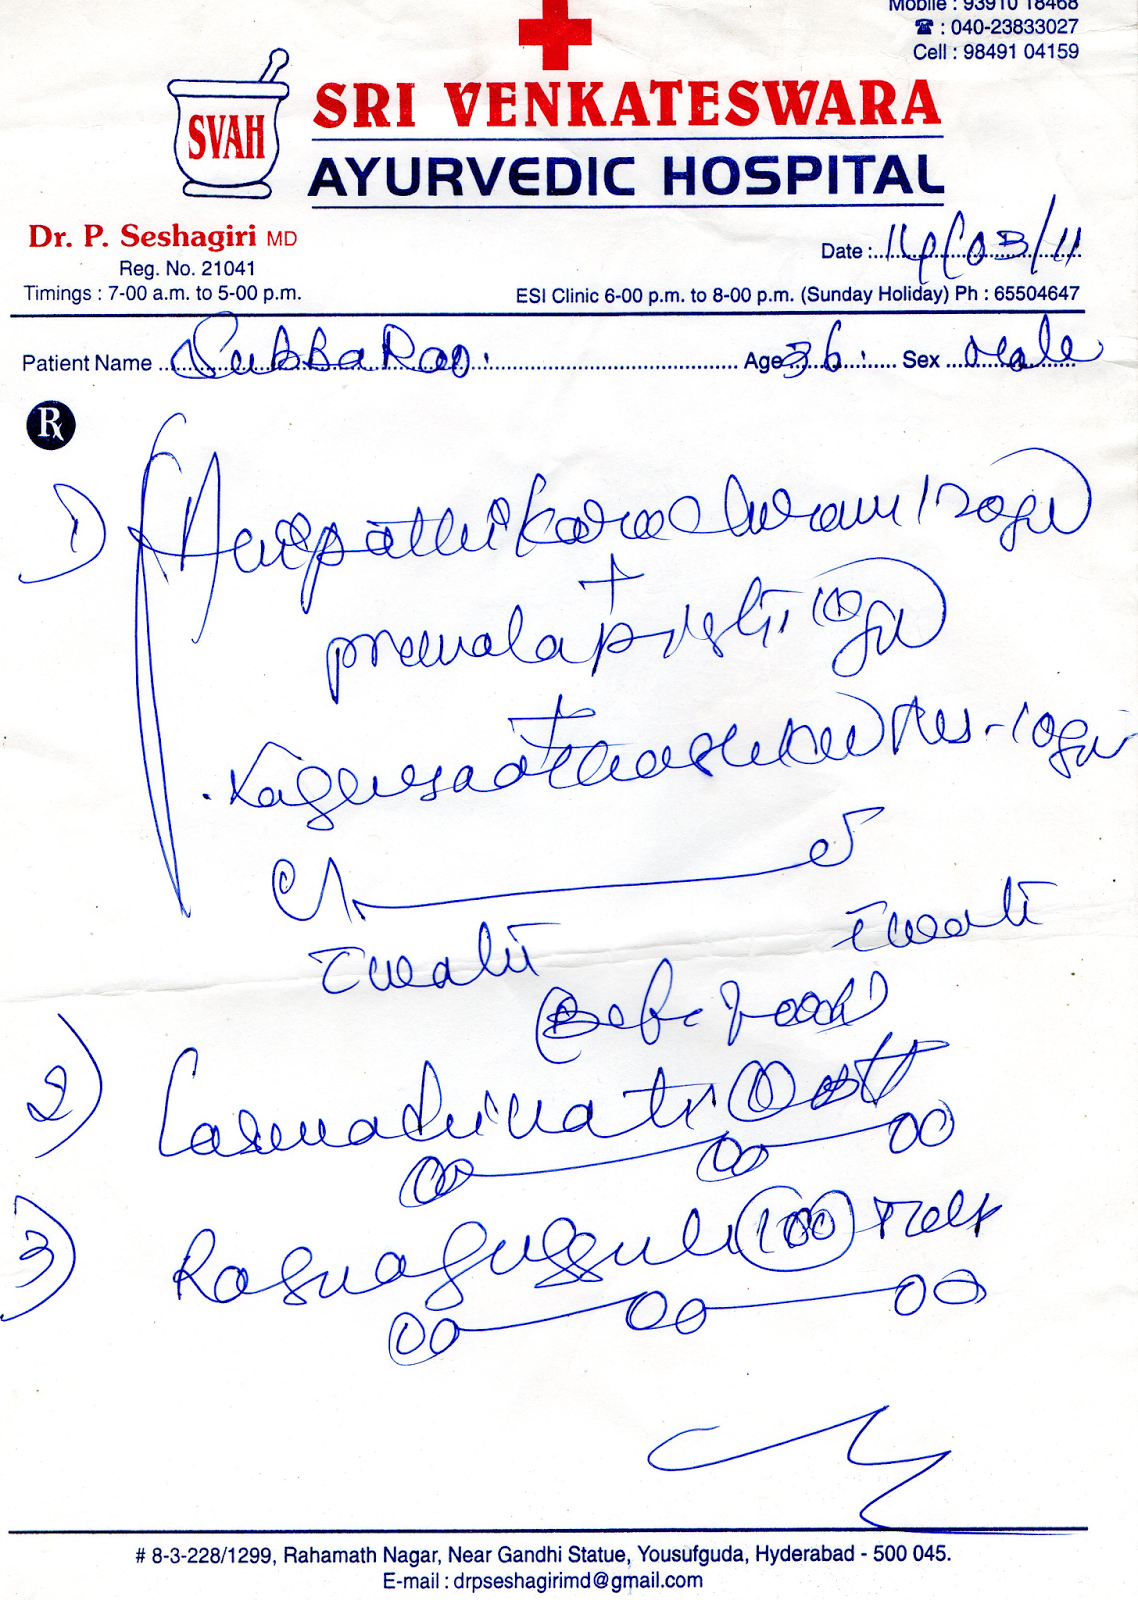 Mobile : 93910 18468
☎ : 040-23833027
Cell : 98491 04159
SVAH
SRI VENKATESWARA
AYURVEDIC HOSPITAL
Dr. P. Seshagiri MD
Reg. No. 21041
Timings : 7-00 a.m. to 5-00 p.m.
Date : 14/03/11
ESI Clinic 6-00 p.m. to 8-00 p.m. (Sunday Holiday) Ph : 65504647
Patient Name SubbaRao. Age 36 Sex Male
Rx
1) Avipathikara
+
pravalapishti 10gm
+
10gm
Befe food
2)
00 00 00
3) Rasnaguggulu 100
00 00 00
# 8-3-228/1299, Rahamath Nagar, Near Gandhi Statue, Yousufguda, Hyderabad - 500 045.
E-mail : drpseshagirimd@gmail.com